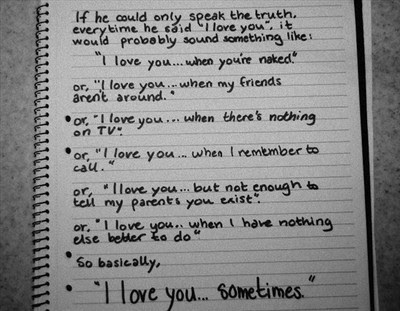 If he could only speak the truth,
everytime he said "I love you", it
would probably sound something like:
"I love you...when you're naked."
or, "I love you...when my friends
arent around."
• or, "I love you... when there's nothing
on TV".
• or, "I love you... when I remember to
call."
or, "I love you... but not enough to
tell my parents you exist".
or. "I love you.. when I have nothing
else better to do"
• So basically,
• "I love you... sometimes."